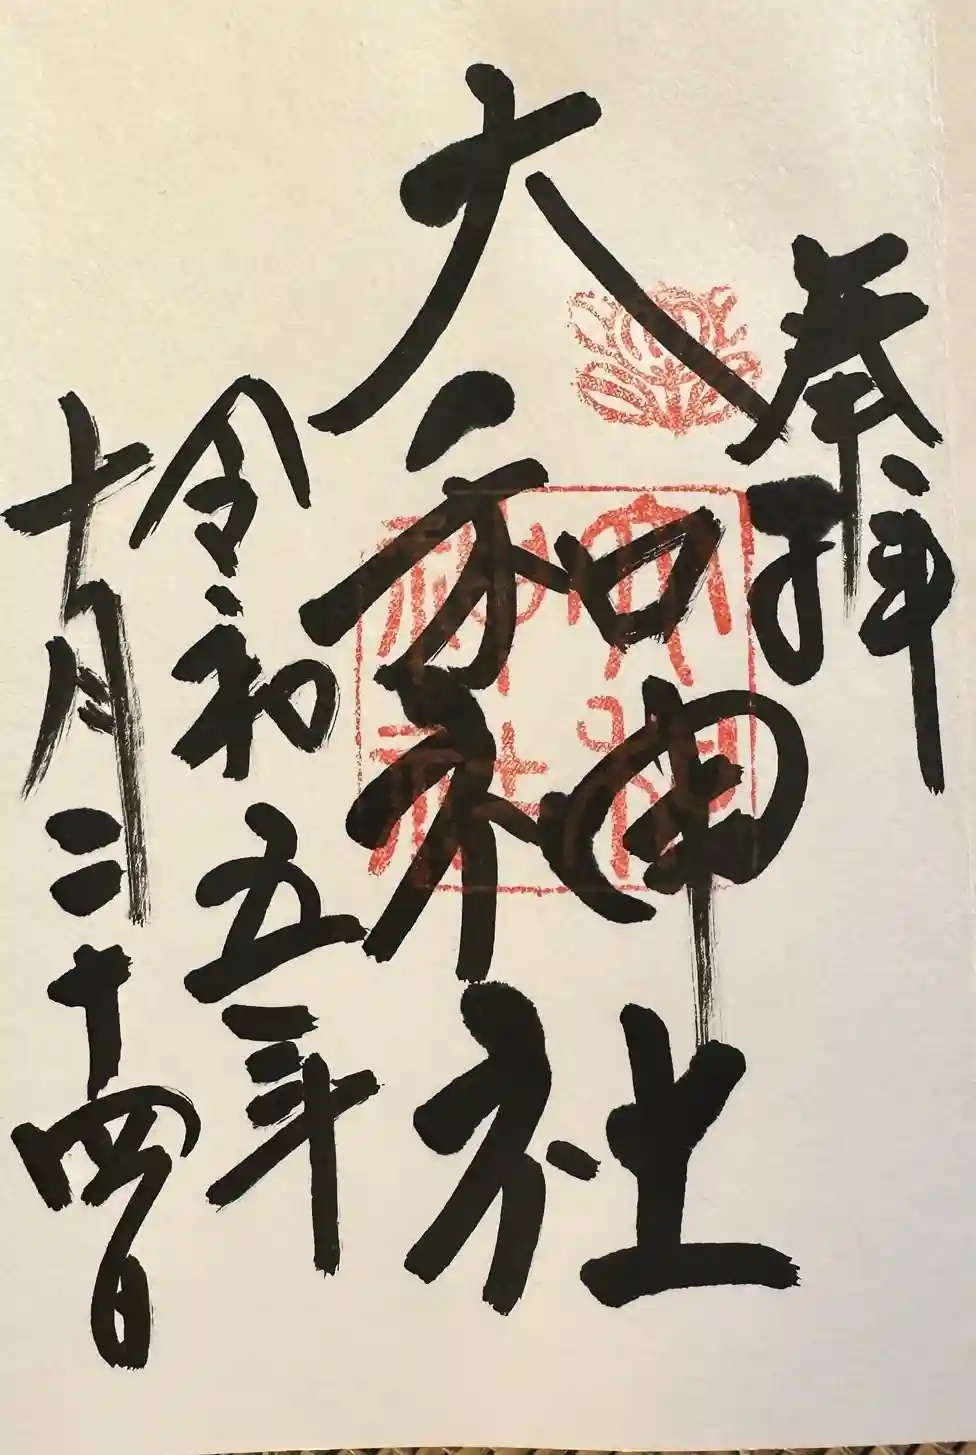 奉拝
大和神社
大和神社
令和五年
十月二十四日